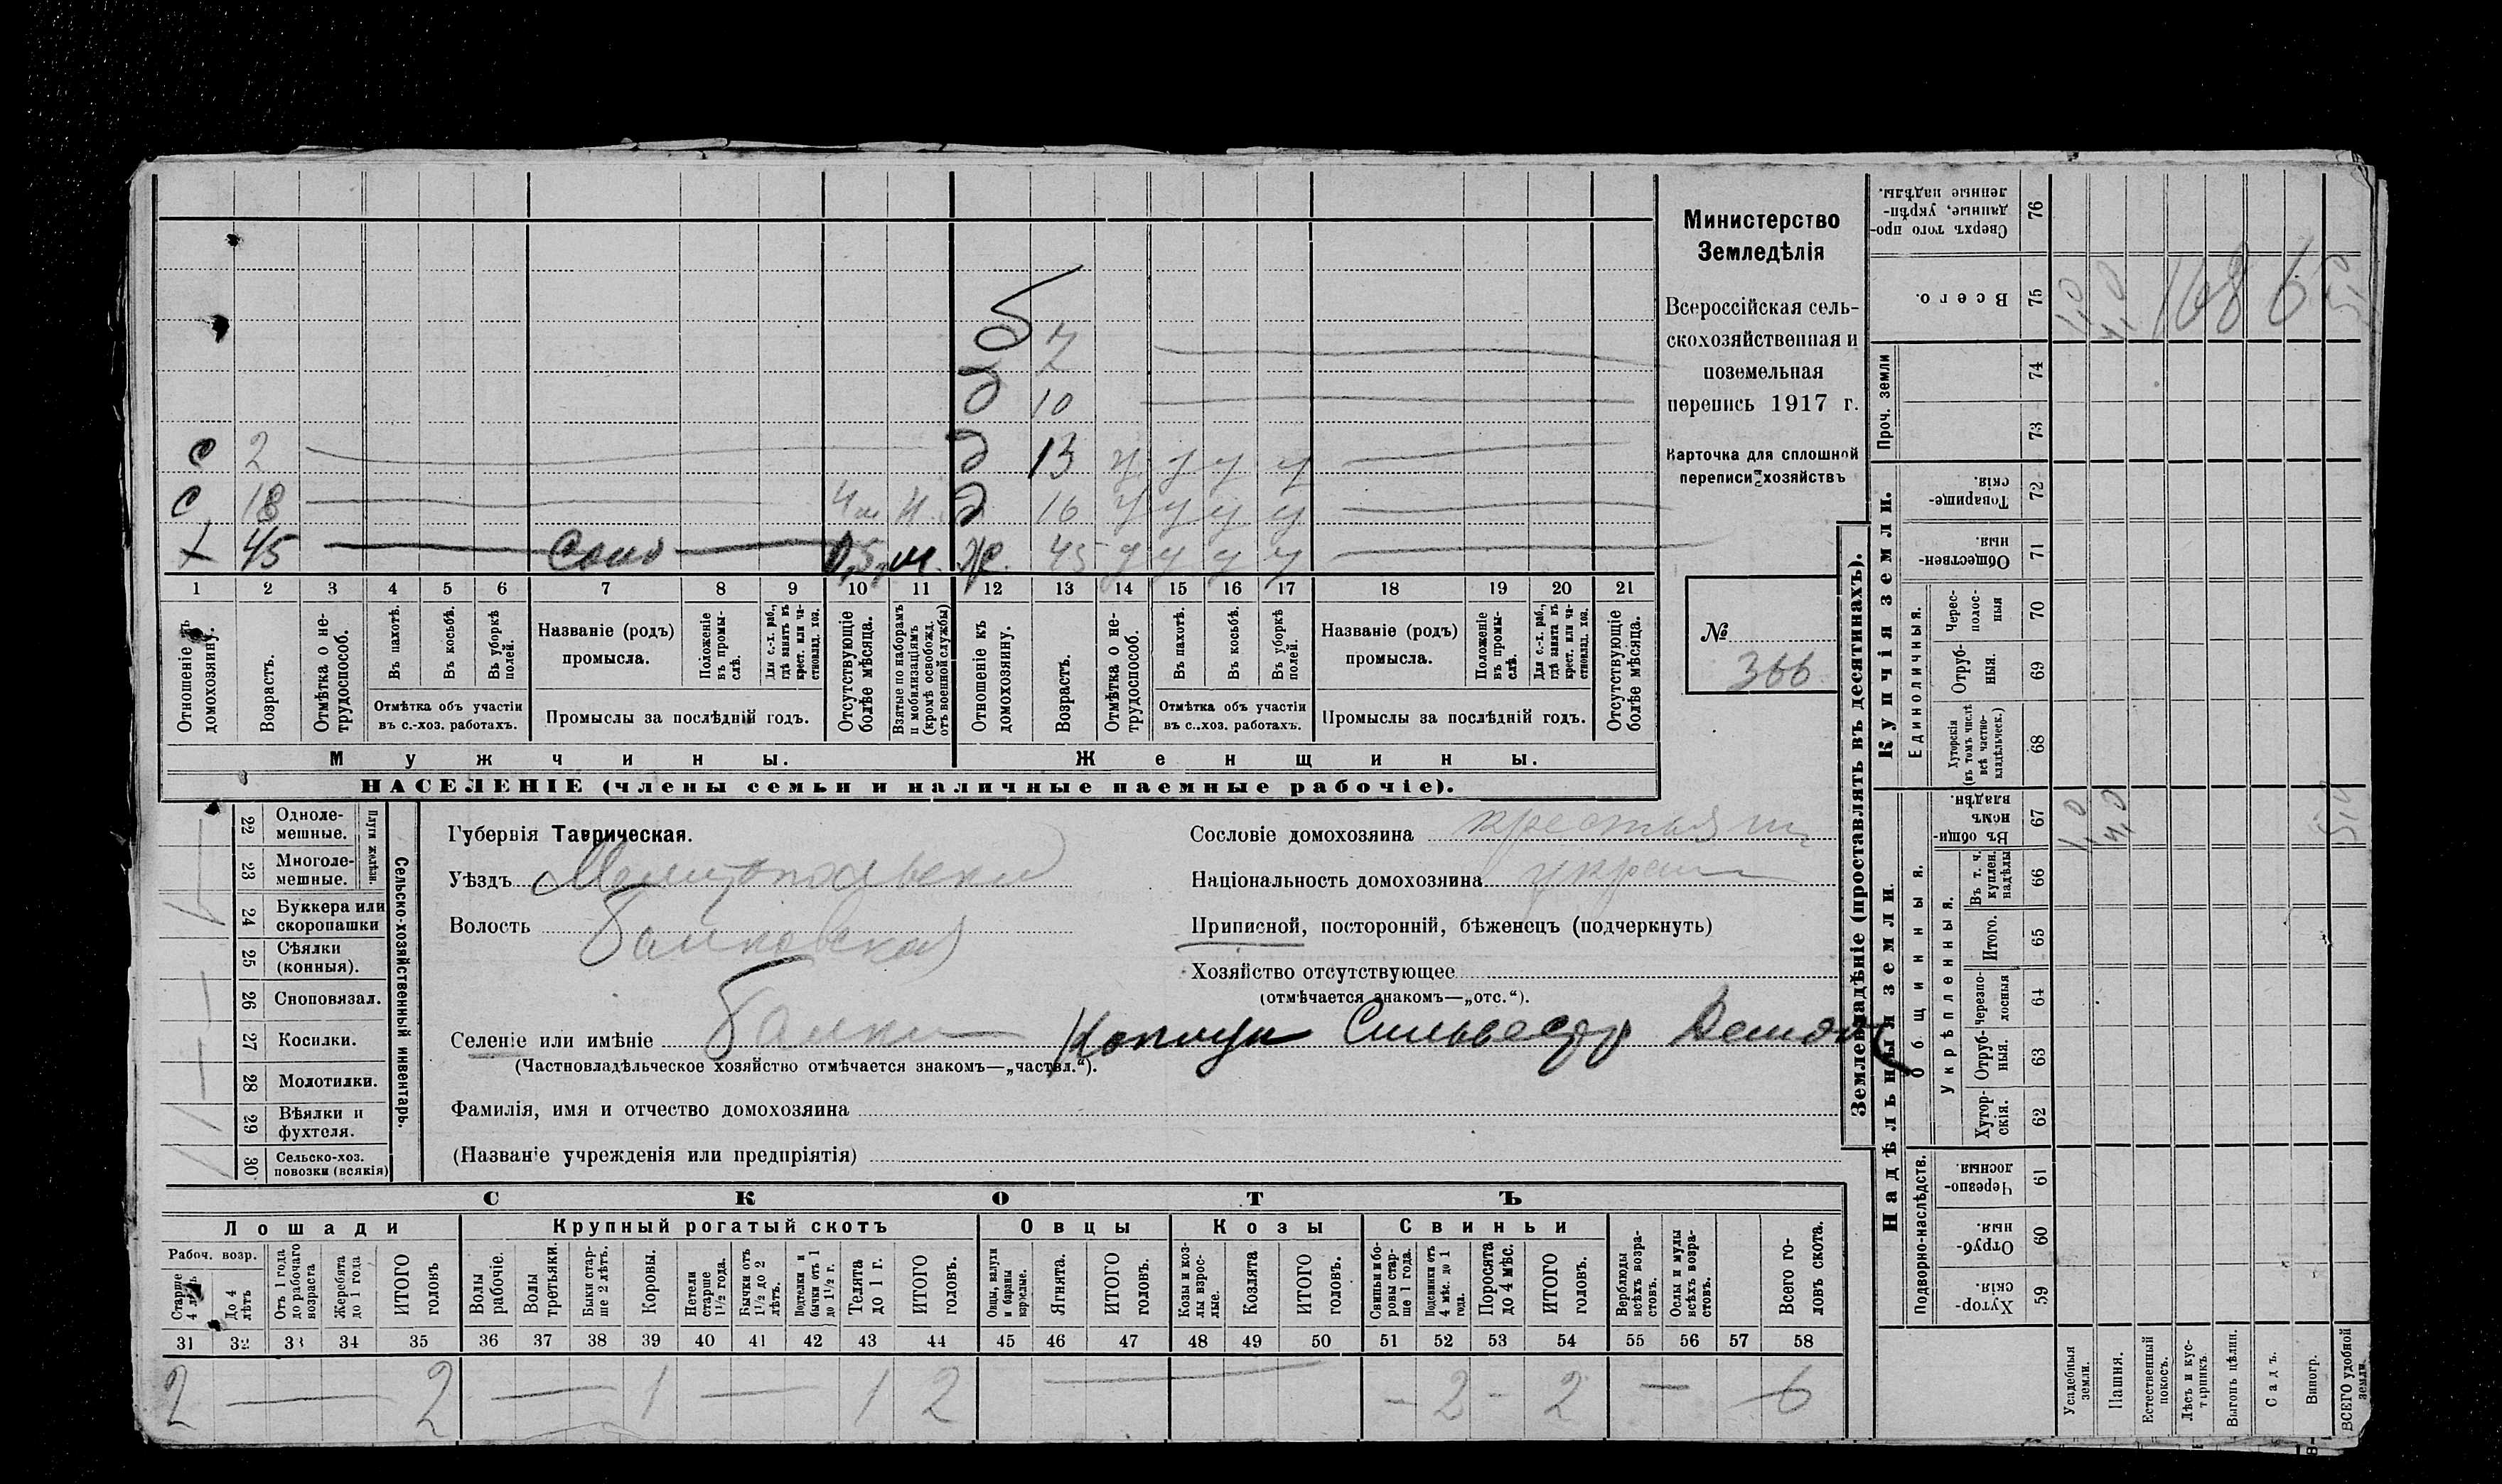 Министерство
Земледѣлія
Всероссійская сель-
скохозяйственная и
поземельная
перепись 1917 г.
Карточка для сплошной
переписи хозяйствъ
№
366
7
10
с 2
д 13 у у у у
с 18 4 м
д 16 у у у у
х 45
ж 45 у у у у
1 2 3 4 5 6 7 8 9 10 11 12 13 14 15 16 17 18 19 20 21
Отношеніе къ домохозяину.
Возрастъ.
Отмѣтка о не-трудоспособ.
Въ пахотѣ.
Въ косьбѣ.
Въ уборкѣ полей.
Отмѣтка объ участіи
въ с.-хоз. работахъ.
Названіе (родъ)
промысла.
Положеніе въ промы-слѣ.
Для с.-х. раб., гдѣ занятъ въ крест. или ча-стновлад. хоз.
Промыслы за послѣдній годъ.
Отсутствующіе болѣе мѣсяца.
Взятые по наборамъ и мобилизаціямъ (кромѣ освобожд. отъ военной службы)
Отношеніе къ домохозяину.
Возрастъ.
Отмѣтка о не-трудоспособ.
Въ пахотѣ.
Въ косьбѣ.
Въ уборкѣ полей.
Отмѣтка объ участіи
въ с..хоз. работахъ.
Названіе (родъ)
промысла.
Положеніе въ промы-слѣ.
Для с.-х. раб., гдѣ занята въ крест. или ча-стновлад. хоз.
Промыслы за послѣдній годъ.
Отсутствующіе болѣе мѣсяца.
Мужчины.
Женщины.
НАСЕЛЕНІЕ (члены семьи и наличные наемные рабочіе).
Сельско-хозяйственный инвентарь.
Плуги желѣзн.
22 Одноле-мешные.
23 Многоле-мешные.
24 Буккера или скоропашки
25 Сѣялки (конныя).
26 Сноповязал.
27 Косилки.
28 Молотилки.
29 Вѣялки и фухтеля.
30 Сельско-хоз. повозки (всякія)
Губернія Таврическая.
Уѣздъ Мелитопольский
Волость Балковская
Селеніе или имѣніе Балки
(Частновладѣльческое хозяйство отмѣчается знакомъ—„частвл.“).
Сильвестр
Фамилія, имя и отчество домохозяина
(Названіе учрежденія или предпріятія)
Сословіе домохозяина крестьянин
Національность домохозяина украин
Приписной, посторонній, бѣженецъ (подчеркнуть)
Хозяйство отсутствующее
(отмѣчается знакомъ—„отс.“).
СКОТЪ
Лошади
Крупный рогатый скотъ
Овцы
Козы
Свиньи
Рабоч. возр.
Старше 4 лѣтъ
До 4 лѣтъ
Отъ 1 года до рабочаго возраста
Жеребята до 1 года
ИТОГО головъ
Волы рабочіе.
Волы третьяки.
Быки стар-ше 2 лѣтъ.
Коровы.
Нетели старше 1½ года.
Бычки отъ 1½ до 2 лѣтъ.
Подтелки и бычки отъ 1 до 1½ г.
Телята до 1 г.
ИТОГО головъ.
Овцы, валухи и бараны взрослые.
Ягнята.
ИТОГО головъ.
Козы и коз-лы взрос-лые.
Козлята
ИТОГО головъ.
Свиньи и бо-ровы стар-ше 1 года.
Подсвинки отъ 4 мѣс. до 1 года.
Поросята до 4 мѣс.
ИТОГО головъ.
Верблюды всѣхъ возра-стовъ.
Ослы и мулы всѣхъ возра-стовъ.
Всего го-ловъ скота.
31 32 33 34 35 36 37 38 39 40 41 42 43 44 45 46 47 48 49 50 51 52 53 54 55 56 57 58
2 — 2 — 1 — 1 2 — - 2 - 2 — 6
Землевладѣніе (проставлять въ десятинахъ).
Купчія земли.
Надѣльныя земли.
Сверхъ того про-данные, укрѣп-ленные надѣлы. 76
Всего. 75 1,0 4,0 168 6 5,0
Проч. земли
74
73
Товарище-скія. 72
Обществен-ныя. 71
Единоличныя.
Черес-полос-ныя 70
Отруб-ныя. 69
Хуторскія (въ томъ числѣ всѣ частно-владѣльческ.) 68
Общинныя.
Въ общин-номъ владѣн. 67 1,0 4,0 5,0
Укрѣпленныя.
Въ т. ч. куплен. надѣлы 66
Итого. 65
Черезпо-лосныя 64
Отруб-ныя. 63
Хутор-скія. 62
Подворно-наслѣдств.
Черезпо-лосныя. 61
Отруб-ныя. 60
Хутор-скія. 59
Усадебныя земли.
Пашня.
Естественный покосъ.
Лѣсъ и кус-тарникъ.
Выгонъ цѣлин.
Садъ.
Виногр.
ВСЕГО удобной земли